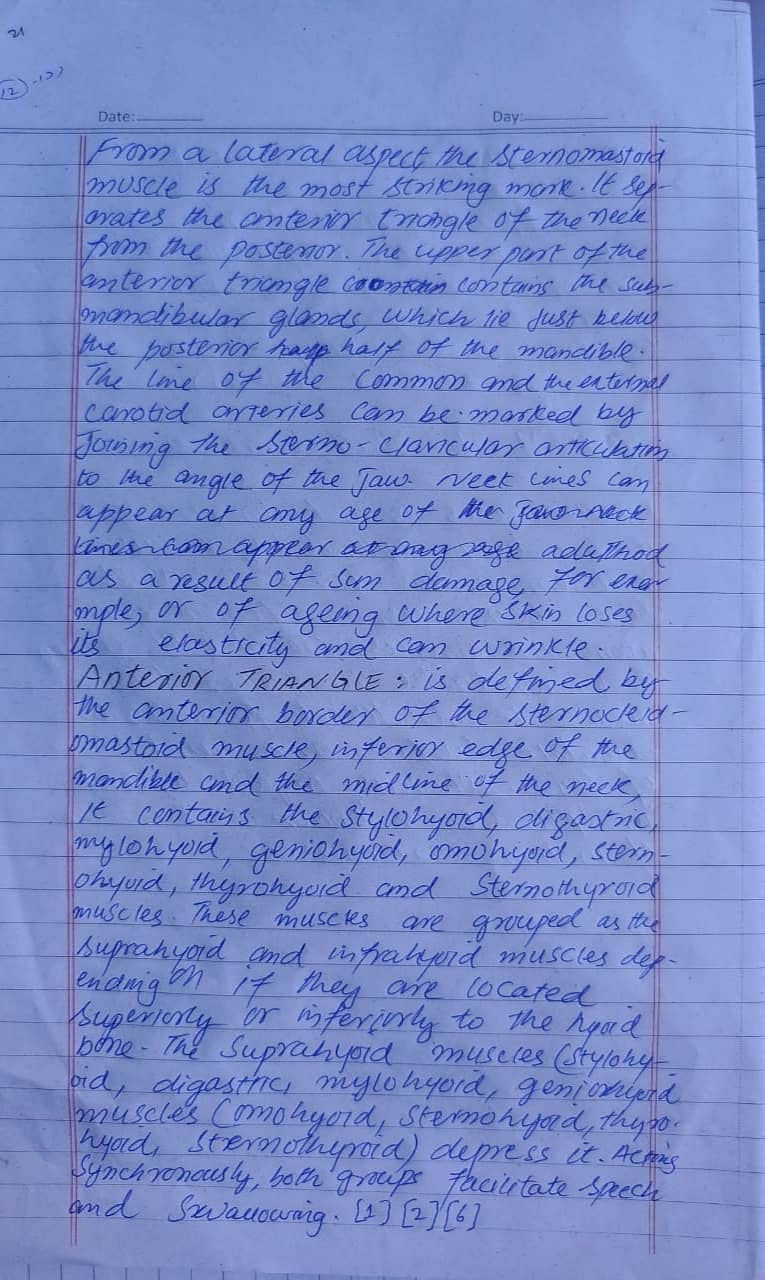 21
12
Date:
Day:
From a lateral aspect the sternomastoid
muscle is the most striking mark. It sep-
arates the anterior triangle of the neck
from the posterior. The upper part of the
anterior triangle contains the sub-
mandibular glands, which lie just below
the posterior half of the mandible.
The line of the common and the external
carotid arteries can be marked by
Joining the sterno-clavicular articulation
to the angle of the jaw. Neck lines can
appear at any age of the neck
lines can appear at any age adulthod
as a result of sun damage, for exa-
mple, or of ageing where skin loses
its elasticity and can wrinkle.
Anterior TRIANGLE: is defined by
the anterior border of the sternocleid-
omastoid muscle, inferior edge of the
mandible and the midline of the neck,
It contains the stylohyoid, digastric,
mylohyoid, geniohyoid, omohyoid, stern-
ohyoid, thyrohyoid and Sternothyroid
muscles. These muscles are grouped as the
suprahyoid and infrahyoid muscles dep-
ending on if they are located
superiorly or inferiorly to the hyoid
bone- The suprahyoid muscles (stylohy-
oid, digastric, mylohyoid, geniohyoid
muscles (omohyoid, sternohyoid, thyro-
hyoid, sternothyroid) depress it. Acting
Synchronously, both groups facilitate speech
and Swallowing. [1] [2] [6]